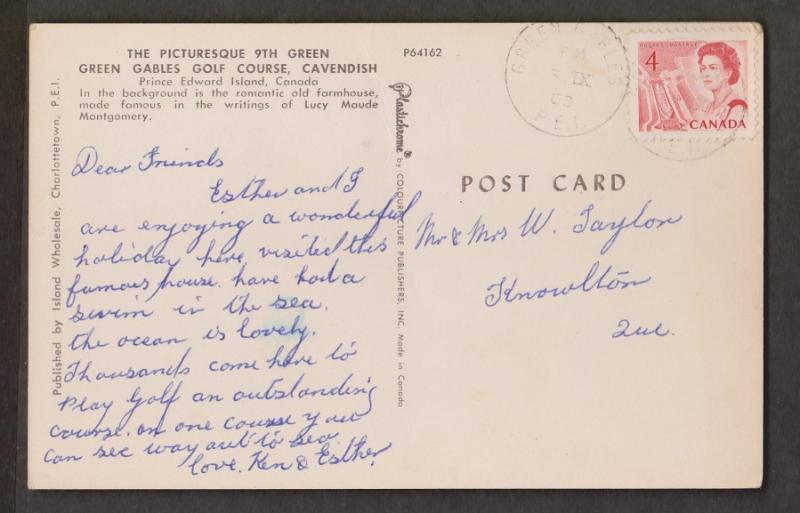 THE PICTURESQUE 9TH GREEN
GREEN GABLES GOLF COURSE, CAVENDISH
Prince Edward Island, Canada
In the background is the romantic old farmhouse,
made famous in the writings of Lucy Maude
Montgomery.
P64162
GREEN GABLES
PM
IX
P.E.I.
POSTES POSTAGE
4
CANADA
P.E.I.
Published by Island Wholesale, Charlottetown, P.E.I.
Plastichrome by COLOURPICTURE PUBLISHERS, INC. Made in Canada
POST CARD
Dear Friends
Esther and I
are enjoying a wonderful
holiday here, visited this
famous house. have had a
swim in the sea.
the ocean is lovely.
Thousands come here to
play Golf an outstanding
course. on one course you
can see way out to sea
love. Ken & Esther.
Mr & Mrs W. Taylor
Knowlton
Que.